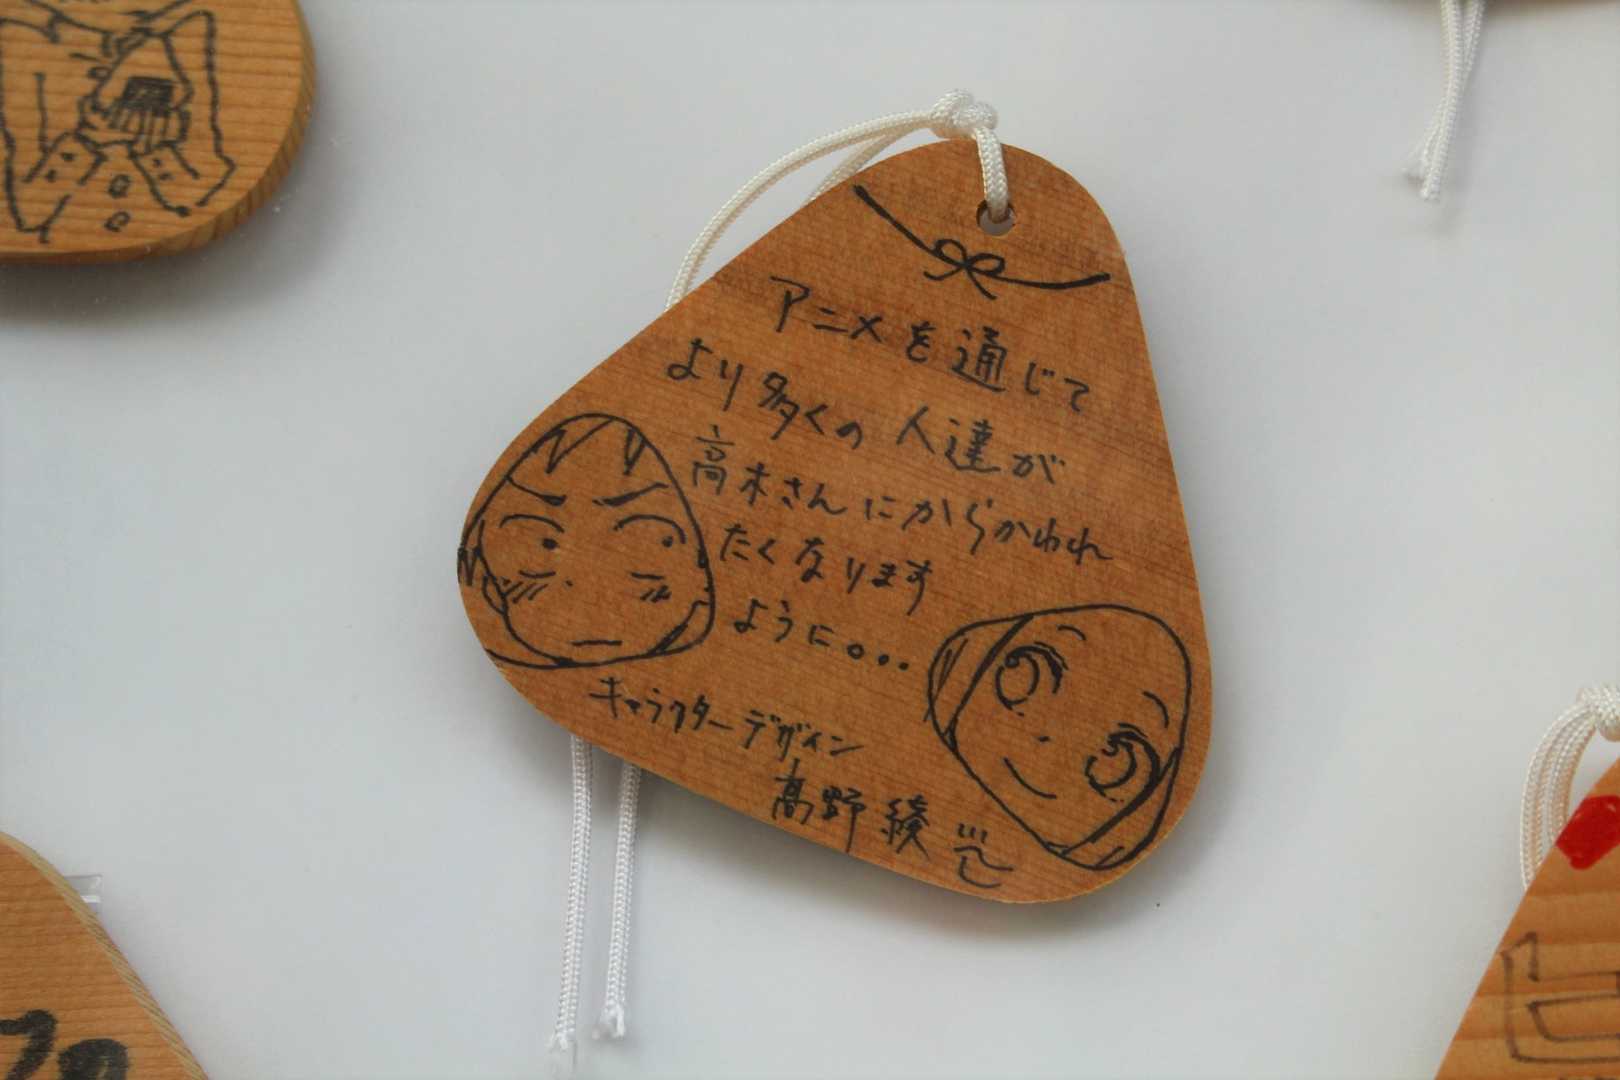 アニメを通じて
より多くの人達が
高木さんにからかわれ
たくなります
ように。・・
キャラクターデザイン
髙野 綾